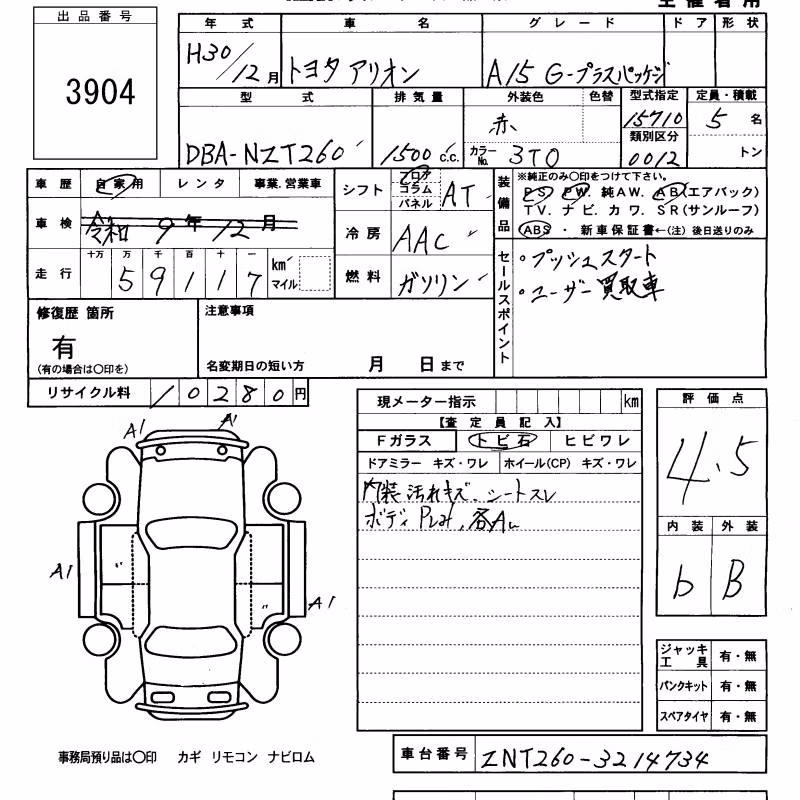 出品番号
3904
年式 車名 グレード ドア 形状
H30/12月 トヨタ アリオン A15 G-プラスパッケージ
型式 排気量 外装色 色替 型式指定 定員・積載
DBA-NZT260 1500 c.c. 赤 カラーNo. 3T0 15710 5名
類別区分
0012 トン
車歴 自家用 レンタ 事業.営業車
車検 令和 9年 12月
走行 十万 万 千 百 十 一
59117 km マイル
シフト フロア コラム パネル AT
冷房 AAC
燃料 ガソリン
装備品 ※純正のみ〇印をつけて下さい。
PS. PW. 純AW. AB(エアバック)
TV. ナビ. カワ. SR(サンルーフ)
ABS ・ 新車保証書←(注) 後日送りのみ
セールスポイント
・プッシュスタート
・ユーザー買取車
修復歴 箇所 注意事項
有
(有の場合は〇印を) 名変期日の短い方 月 日まで
リサイクル料 10280円
A1 A1
A1 〃 〃 A1
現メーター指示 km
【査定員記入】
Fガラス トビ石 ヒビワレ
ドアミラー キズ・ワレ ホイール(CP) キズ・ワレ
内装 汚れキズ、シートスレ
ボディ Pしみ、各A
評価点
4.5
内装 外装
b B
ジャッキ工具 有・無
パンクキット 有・無
スペアタイヤ 有・無
事務局預り品は〇印 カギ リモコン ナビロム
車台番号 ZNT260-3214734